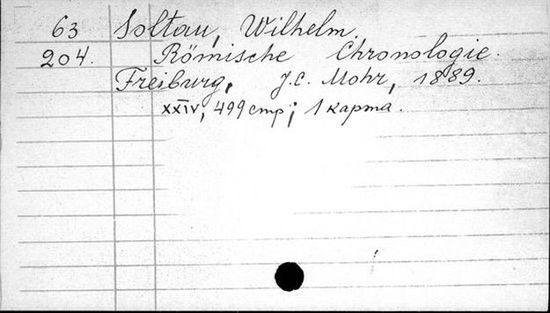 63 Soltau, Wilhelm.
204. Römische Chronologie.
Freiburg, J.C. Mohr, 1889.
XXIV, 499 стр; 1 карта.